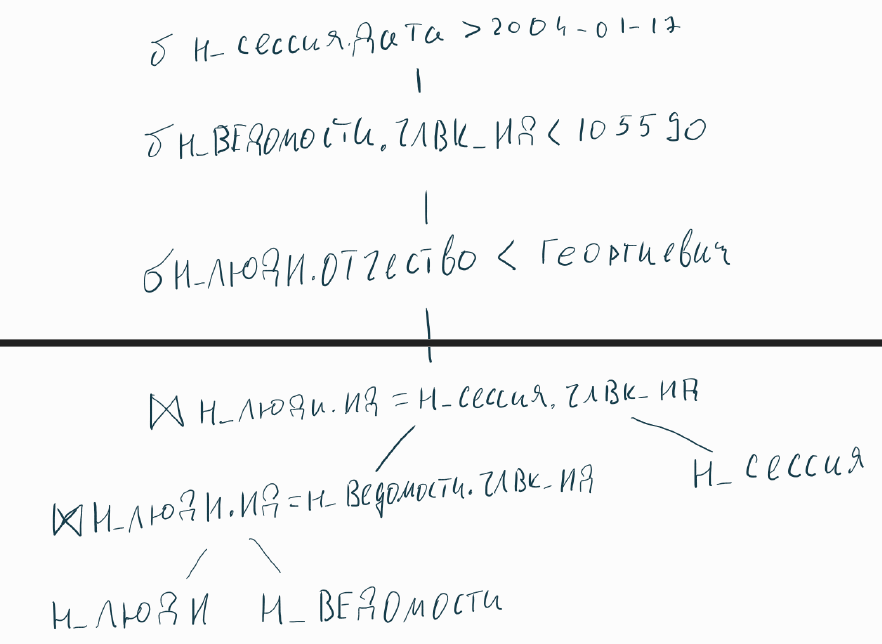 σ Н_сессия.Дата > 2004-01-17
σ Н_ВЕДОМОСТИ.ЧЛВК_ИД < 105590
σ Н_ЛЮДИ.ОТЧЕСТВО < Георгиевич
⋈ Н_ЛЮДИ.ИД = Н_сессия.ЧЛВК_ИД
Н_СЕССИЯ
⋈ Н_ЛЮДИ.ИД = Н_Ведомости.ЧЛВК_ИД
Н_ЛЮДИ Н_ВЕДОМОСТИ